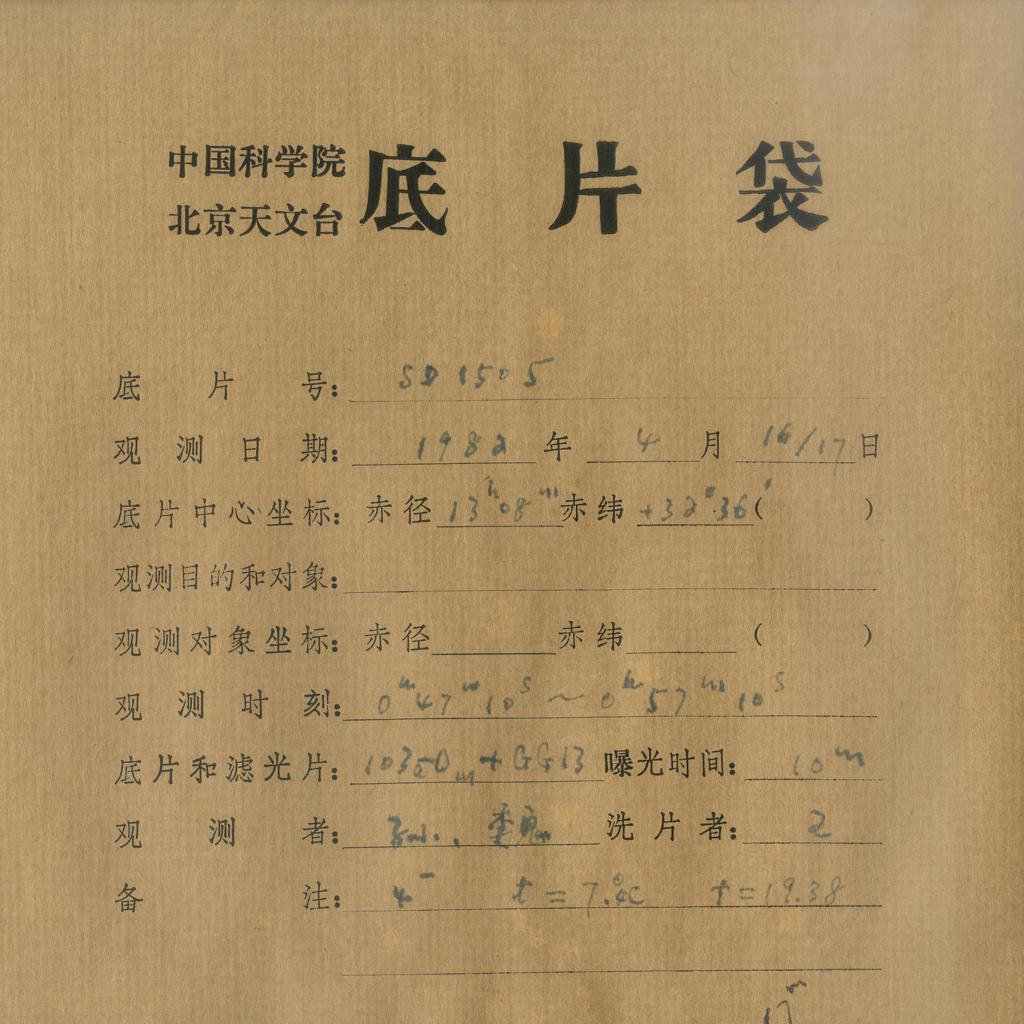 中国科学院
北京天文台
底片袋
底片号: SD 1505
观测日期: 1982 年 4 月 16/17 日
底片中心坐标: 赤径 13h08m 赤纬 +32°36′ ( )
观测目的和对象:
观测对象坐标: 赤径 赤纬 ( )
观测时刻: 0h47m10s ~ 0h57m10s
底片和滤光片: 103aO + GG13 曝光时间: 10m
观测者: 洗片者: Z
备注: 4⁻ t = 7.°4C f = 19.38